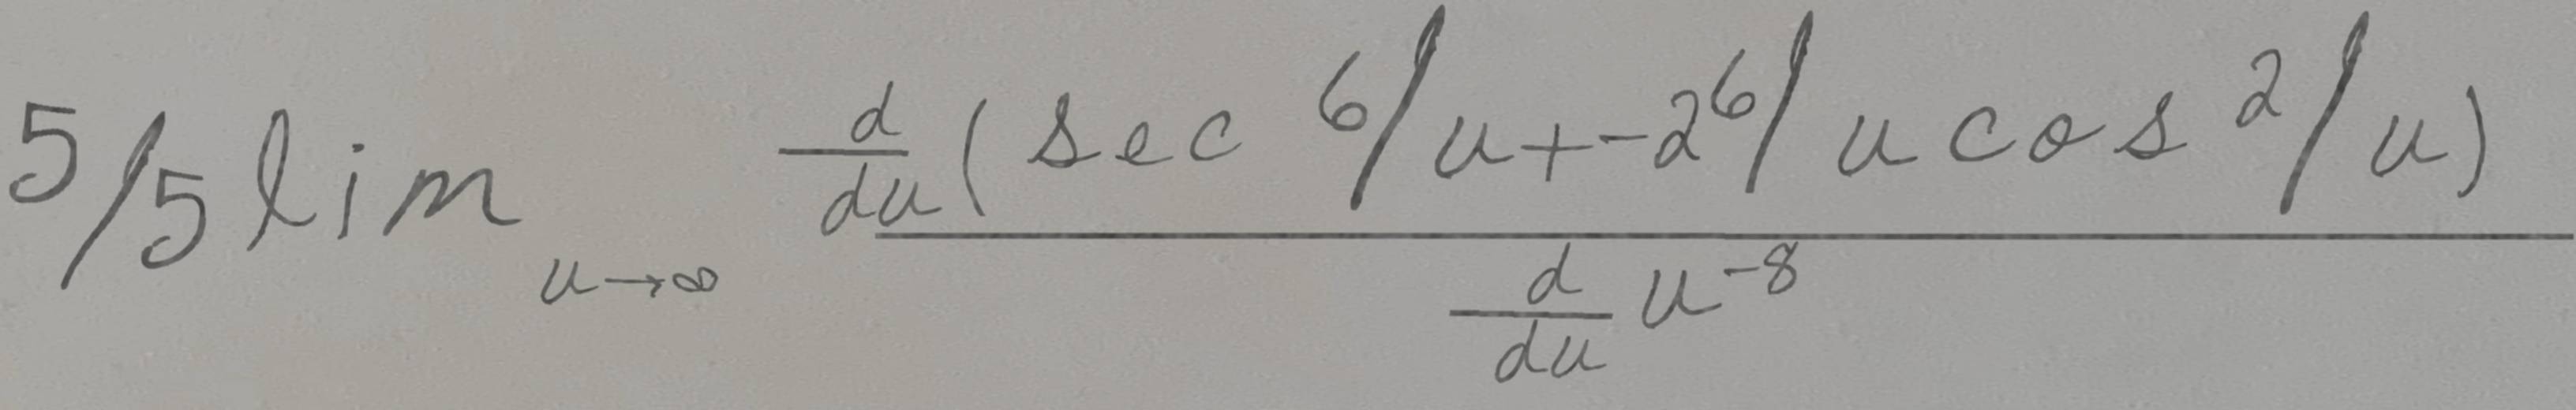 5/5 lim u→∞ d/du (sec 6/u + -2 6/u cos 2/u) / d/du u^-8